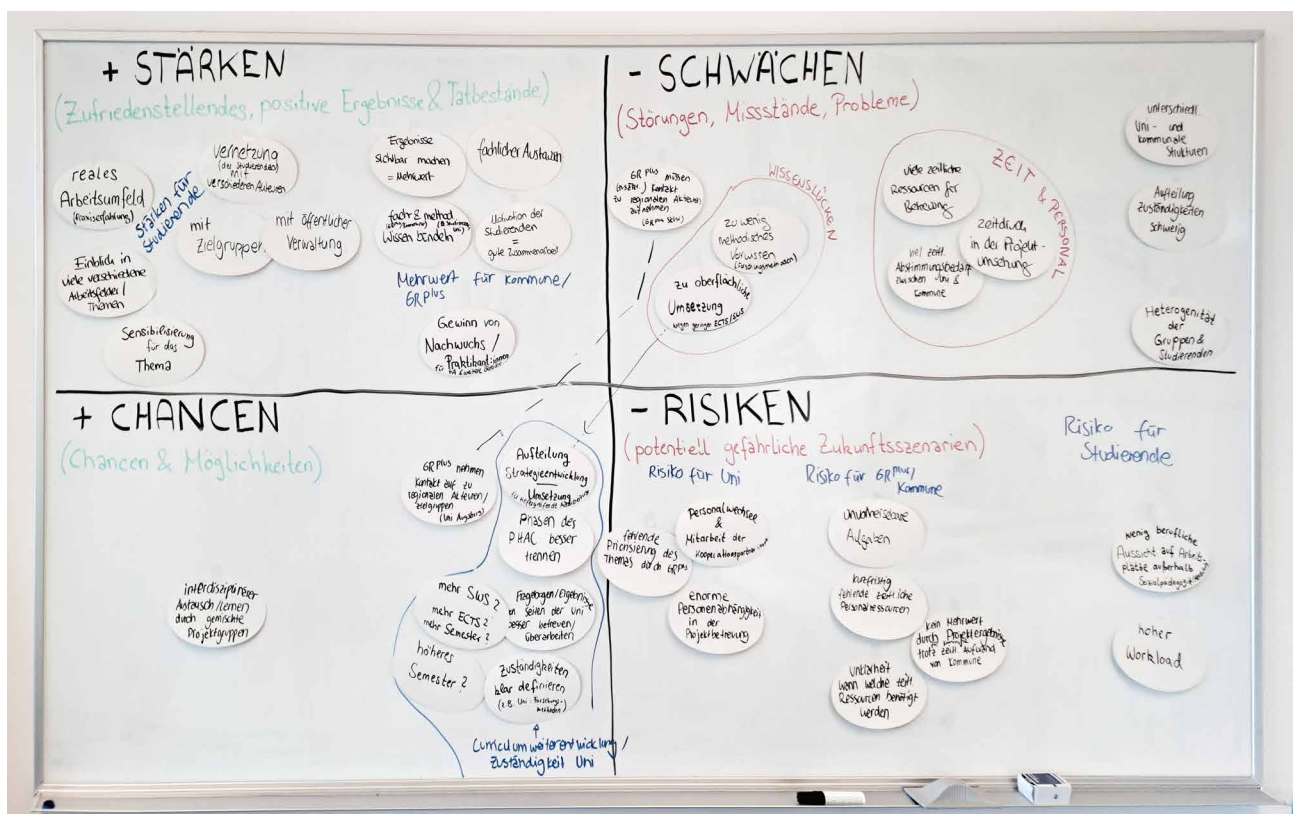 + STÄRKEN
(Zufriedenstellendes, positive Ergebnisse & Tatbestände)
reales
Arbeitsumfeld
(Praxiserfahrung)
Stärken für
Studierende
Vernetzung
(der Studierenden)
mit
verschiedenen Akteuren
mit
Zielgruppen
mit öffentlicher
Verwaltung
Einblick in
viele verschiedene
Arbeitsfelder/
Themen
Sensibilisierung
für das
Thema
Ergebnisse
sichtbar machen
= Mehrwert
fachlicher Austausch
fach & method
Wissen bündeln
Motivation der
Studierenden
=
gute Zusammenarbeit
Mehrwert für Kommune/
GRplus
Gewinn von
Nachwuchs /
Praktikant:innen
- SCHWÄCHEN
(Störungen, Missstände, Probleme)
GRplus müssen
Kontakt
zu regionalen Akteuren
aufnehmen
WISSENSLÜCKEN
zu wenig
methodisches
Vorwissen
(Forschungsmethoden)
zu oberflächliche
Umsetzung
wegen geringer ECTS/SWS
ZEIT & PERSONAL
viele zeitliche
Ressourcen für
Betreuung
zeitdruck
in der Projekt-
umsetzung
viel zeitl.
Abstimmungsbedarf
zwischen Uni &
Kommune
unterschiedl.
Uni- und
kommunale
Strukturen
Aufteilung
Zuständigkeiten
schwierig
Heterogenität
der
Gruppen &
Studierenden
+ CHANCEN
(Chancen & Möglichkeiten)
interdisziplinärer
Austausch/lernen
durch gemischte
Projektgruppen
GRplus nehmen
Kontakt auf zu
regionalen Akteuren/
Zielgruppen
(Uni Augsburg)
Aufteilung
Strategieentwicklung
Umsetzung
Phasen des
PHAC besser
trennen
mehr SWS?
mehr ECTS?
mehr Semester?
Fragebogen/Ergebnisse
von Seiten der Uni
besser betreuen/
überarbeiten
höheres
Semester?
Zuständigkeiten
klar definieren
(z.B. Uni: Forschungs-
methoden)
Curriculumweiterentwicklung/
Zuständigkeit Uni
- RISIKEN
(potentiell gefährliche Zukunftsszenarien)
Risiko für Uni
fehlende
Priorisierung des
Themas durch GRplus
Personalwechsel
&
Mitarbeit der
Kooperationspartner:innen
enorme
Personenabhängigkeit
in der
Projektbetreuung
Risiko für GRplus/
Kommune
unvorhersehbare
Aufgaben
kurzfristig
fehlende zeitliche
Personalressourcen
kein Mehrwert
durch Projektergebnisse
trotz zeitl. Aufwand
von Kommune
Unklarheit
wann welche zeitl.
Ressourcen benötigt
werden
Risiko für
Studierende
wenig berufliche
Aussicht auf Arbeits-
plätze außerhalb
hoher
Workload